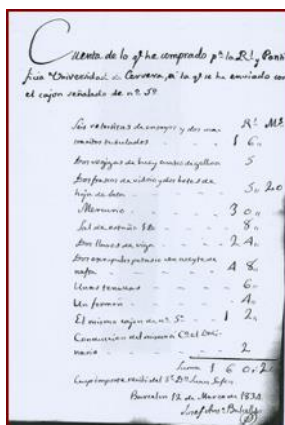 Cuenta de lo qe he comprado pa la Rl. y Ponti
ficia Universidad de Cervera, a la qe se ha enviado con
el cajon señalado de no. 5o
Rs. Ms.
Seis retortitas de ensayos y dos mas
tubulados - - - 1 6,,
Dos vegigas de buey - - 5
Dos frascos de vidrio y dos botes de
hoja de lata - - - 5,, 20
Mercurio - - - 3 0,,
Sal de estaño - - - 8,,
Dos - - - 2 4,,
Dos potasio con aceyte de
nafta - - - 4 8,,
Unas tenazas - - - 6,,
Un formon - - - 4,,
El mismo cajon de no. 5o - - 1 2,,
Conduccion del mismo á Ordi
nario - - - 2
Suma 1 6 0,, 20
recibi del Sr. Dn. Juan
Barcelona 12 de Marzo de 1834
Josef Anto.